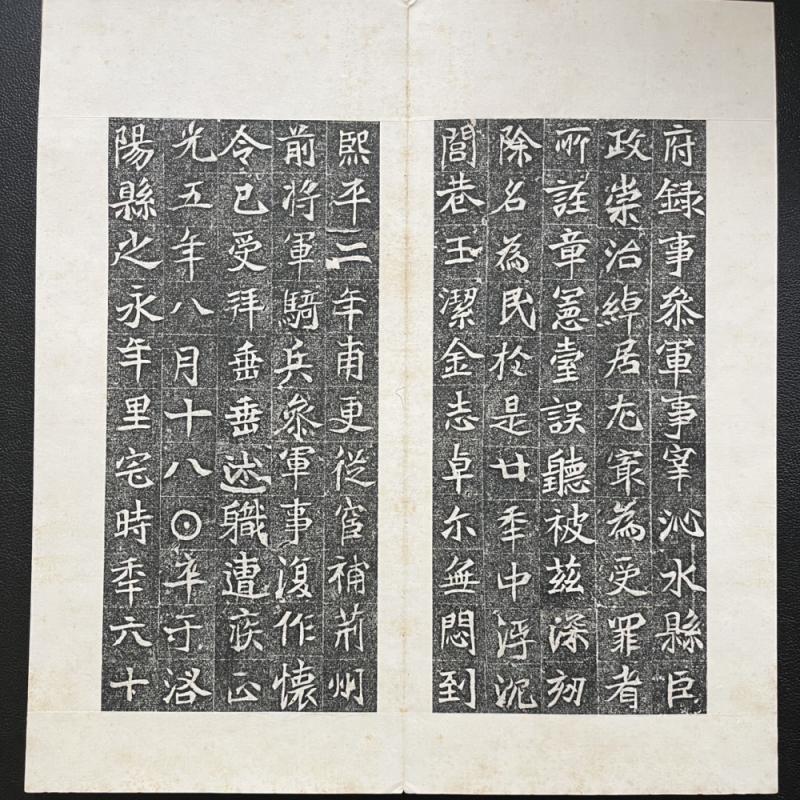 府録事叅軍事宰沁水縣臣
政崇治綽居尤㝡為受罪者
所詿章憲臺誤聽被兹深刻
除名為民於是廿秊中浮沉
閭巷玉潔金志卓尓無悶到
熙平二年甫更從宦補荊州
前将軍騎兵叅軍事復作懷
令已受拜垂垂述職遭疾正
光五年八月十八⊙卒于洛
陽縣之永年里宅時秊六十